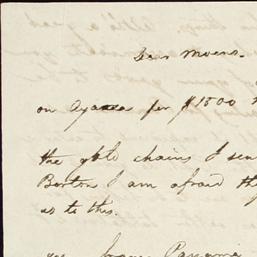 Dear Moses.
on Ayres for $1500
the gold chains I sen
Burton I am afraid th
as to this.
Panama